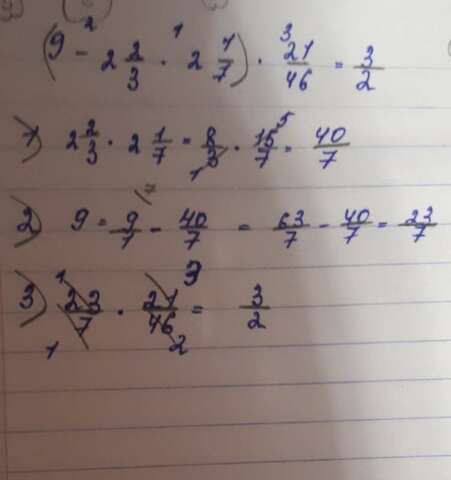 (9 -² 2 2/3 ·¹ 2 1/7) ·³ 21/46 = 3/2
1) 2 2/3 · 2 1/7 = 8/3 · 15/7 = 40/7
2) 9 = 9/1 - 40/7 = 63/7 - 40/7 = 23/7
3) 23/7 · 21/46 = 3/2